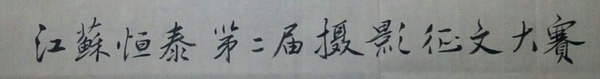 江蘇恒泰第二届摄影征文大賽